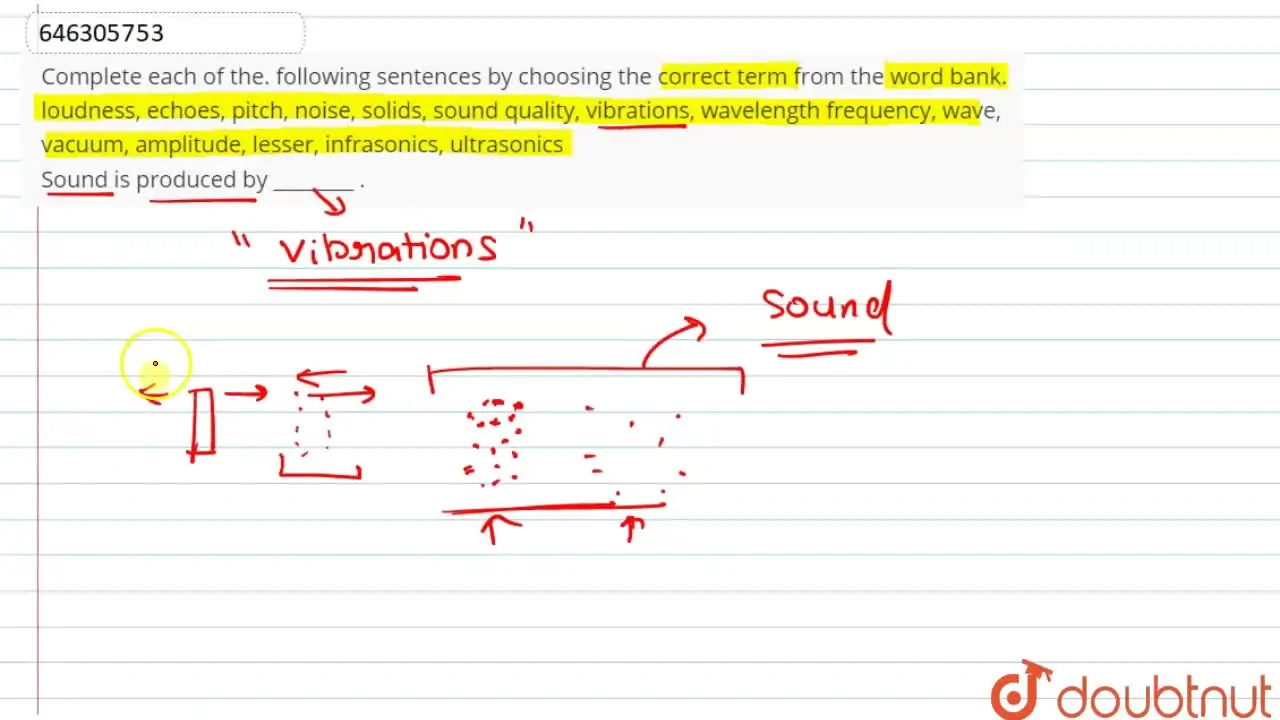 646305753
Complete each of the. following sentences by choosing the correct term from the word bank.
loudness, echoes, pitch, noise, solids, sound quality, vibrations, wavelength frequency, wave,
vacuum, amplitude, lesser, infrasonics, ultrasonics
Sound is produced by ________ .
" Vibrations "
Sound
doubtnut